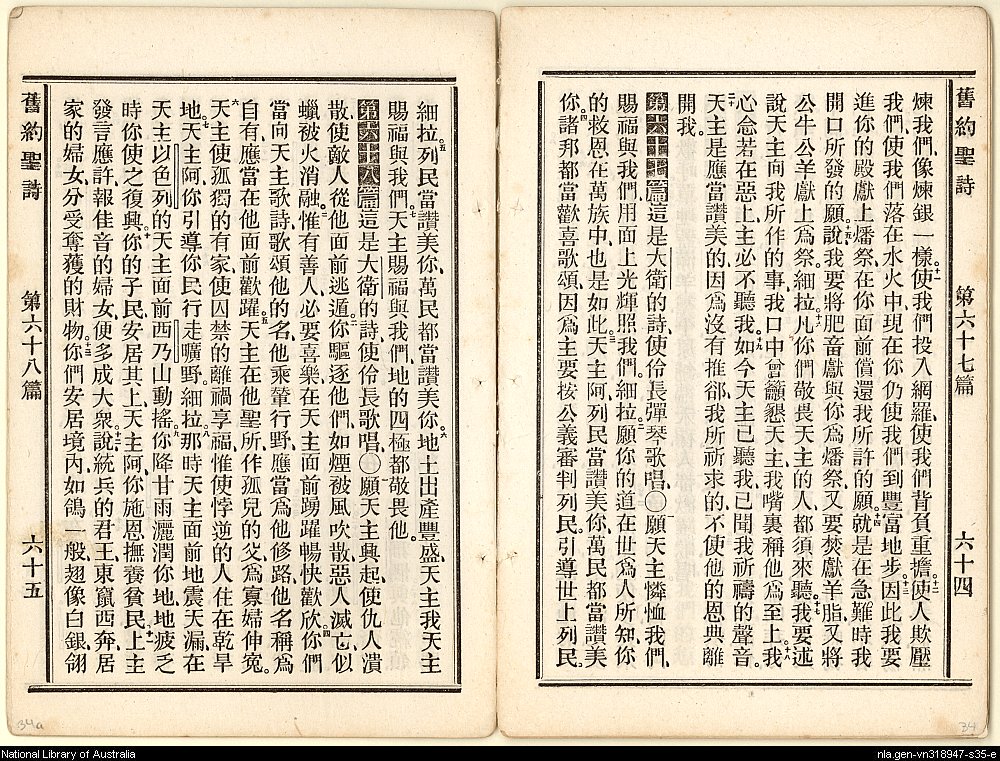 舊約聖詩 第六十七篇 六十四
煉我們、像煉銀一樣、十一使我們投入網羅、使我們背負重擔、十二使人欺壓
我們、使我們落在水火中、現在你仍使我們到豐富地步、十三因此我要
進你的殿獻上燔祭、在你面前償還我所許的願、十四就是在急難時我
開口所發的願、十五說我要將肥畜獻與你爲燔祭、又要焚獻羊脂、又將
公牛公羊獻上爲祭。細拉十六凡你們敬畏天主的人、都須來聽、十七我要述
說天主向我所作的事、我口中曾籲懇天主、我嘴裏稱他爲至上。十八我
心念若在惡上、主必不聽我。十九如今天主已聽我、已聞我祈禱的聲音。
二十天主是應當讚美的、因爲沒有推卻我所祈求的、不使他的恩典離
開我。
第六十七篇 這是大衛的詩、使伶長彈琴歌唱、〇一願天主憐恤我們、
賜福與我們、用面上光輝照我們。細拉二願你的道在世爲人所知、你
的救恩在萬族中、也是如此。三天主阿、列民當讚美你、萬民都當讚美
你。四諸邦都當歡喜歌頌、因爲主要按公義審判列民。引導世上列民。
細拉五列民當讚美你、萬民都當讚美你。六地土出產豐盛、天主我天主
賜福與我們。七天主賜福與我們、地的四極都敬畏他。
第六十八篇 這是大衛的詩、使伶長歌唱、〇一願天主興起、使仇人潰
散、使敵人從他面前逃遁。二你驅逐他們、如煙被風吹散、惡人滅亡、似
蠟被火消融。三惟有善人必要喜樂、在天主面前踴躍、暢快歡欣。四你們
當向天主歌詩、歌頌他的名、他乘輦行野、應當爲他修路、他名稱爲
自有、應當在他面前歡躍。五天主在他聖所、作孤兒的父、爲寡婦伸冤。
六天主使孤獨的有家、使囚禁的離禍享福、惟使悖逆的人住在乾旱
地。七天主阿、你引導你民行走曠野。細拉八那時天主面前地震天漏、在
天主以色列的天主面前西乃山動搖。九你降甘雨灑潤你地、地疲乏
時你使之復興。十你的子民安居其上、天主阿、你施恩撫養貧民。十一上主
發言應許、報佳音的婦女便多成大衆。十二說統兵的君王、東竄西奔、居
家的婦女分受奪獲的財物。十三你們安居境內、如鴿一般、翅像白銀翎
舊約聖詩 第六十八篇 六十五
34a
34
National Library of Australia
nla.gen-vn318947-s35-e